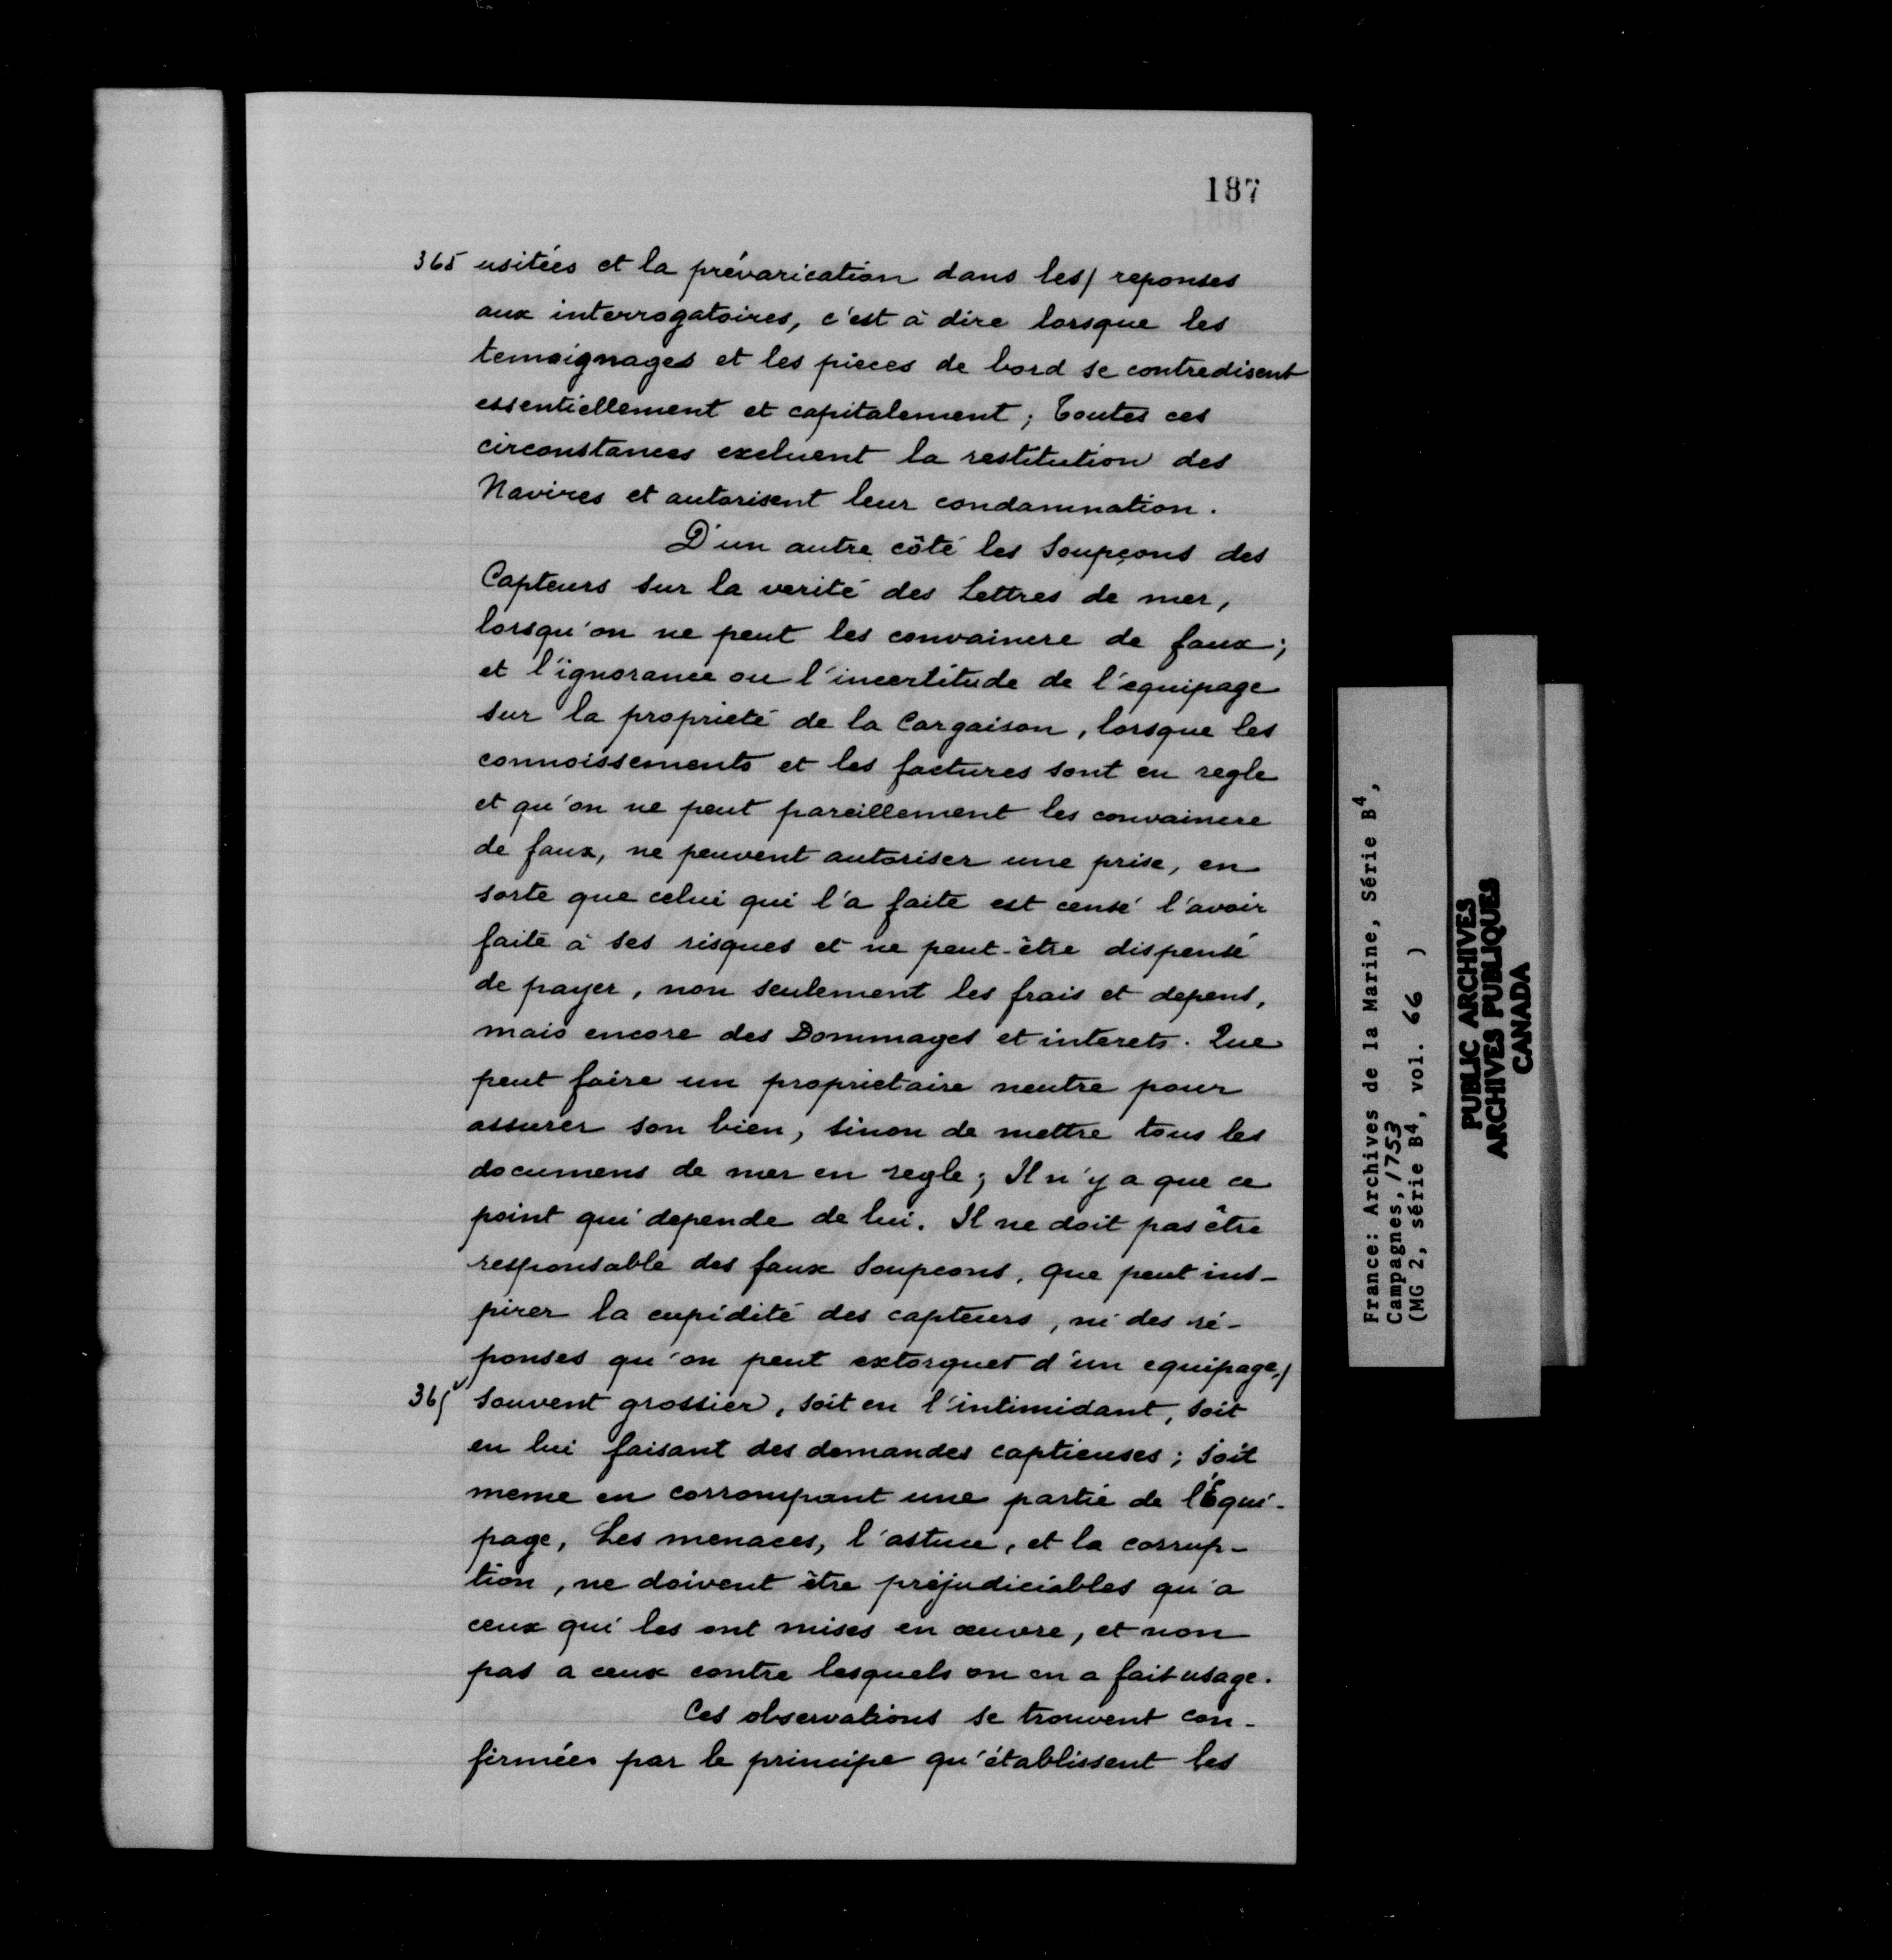 187
365 usitées et la prévarication dans les/ reponses
aux interrogatoires, c'est à dire lorsque les
temoignages et les pieces de bord se contredisent
essentiellement et capitalement; Toutes ces
circonstances excluent la restitution des
Navires et autorisent leur condamnation.
D'un autre côté les Soupçons des
Capteurs sur la verité des Lettres de mer,
lorsqu'on ne peut les convaincre de faux;
et l'ignorance ou l'incertitude de l'equipage
sur la proprieté de la Cargaison, lorsque les
connoissements et les factures sont en regle
et qu'on ne peut pareillement les convaincre
de faux, ne peuvent autoriser une prise, en
sorte que celui qui l'a faite est censé l'avoir
faite à ses risques et ne peut-être dispensé
de payer, non seulement les frais et depens,
mais encore des Dommages et interets. Que
peut faire un proprietaire neutre pour
assurer son bien, sinon de mettre tous les
documens de mer en regle; Il n'y a que ce
point qui depende de lui. Il ne doit pas être
responsable des faux Soupcons, que peut ins-
pirer la cupidité des capteurs, ni des ré-
ponses qu'on peut extorquer d'un equipage,/
365v Souvent grossier, soit en l'intimidant, soit
en lui faisant des demandes captieuses; soit
meme en corrompant une partie de l'Équi-
page, Les menaces, l'astuce, et la corrup-
tion, ne doivent être préjudiciables qu'a
ceux qui les ont mises en œuvre, et non
pas a ceux contre lesquels on en a fait usage.
Ces observations se trouvent con-
firmées par le principe qu'établissent les
France: Archives de la Marine, Série B4,
Campagnes, 1753
(MG 2, série B4, vol. 66 )
PUBLIC ARCHIVES
ARCHIVES PUBLIQUES
CANADA